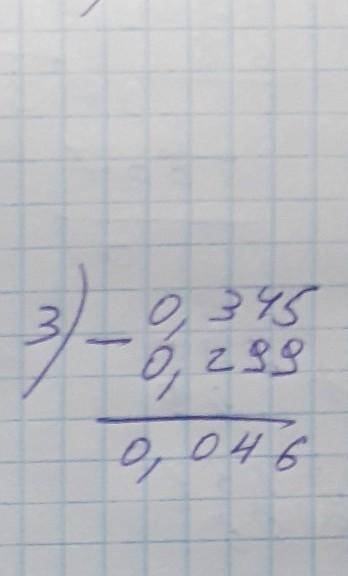 3) - 0,345
0,299
0,046